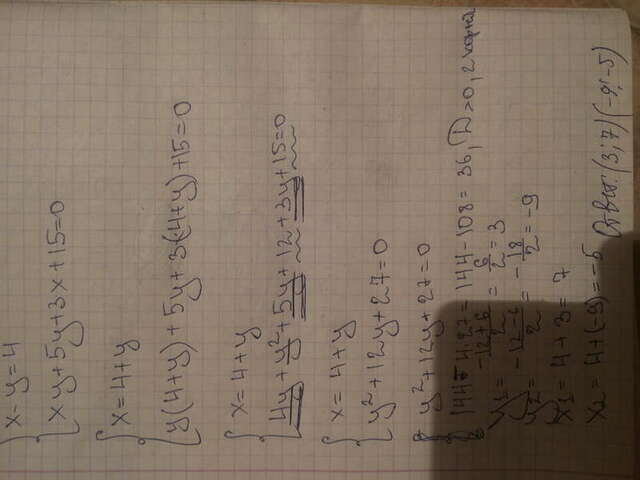 x-y=4
xy+5y+3x+15=0
x=4+y
y(4+y)+5y+3(4+y)+15=0
x=4+y
4y+y²+5y+12+3y+15=0
x=4+y
y²+12y+27=0
y²+12y+27=0
144-4·27=144-108=36, D>0, 2 корня
y₁=(-12+6)/2=6/2=3
y₂=(-12-6)/2=-18/2=-9
x₁=4+3=7
x₂=4+(-9)=-5 Ответ: (3;7)(-9;-5)